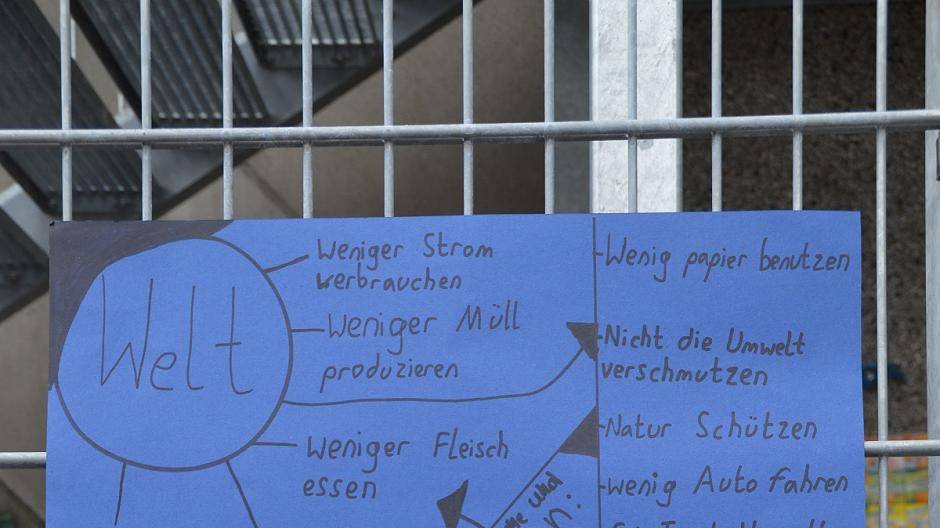 Welt
Weniger Strom
verbrauchen
Weniger Müll
produzieren
Weniger Fleisch
essen
Wenig papier benutzen
Nicht die Umwelt
verschmutzen
Natur Schützen
wenig Auto fahren
und